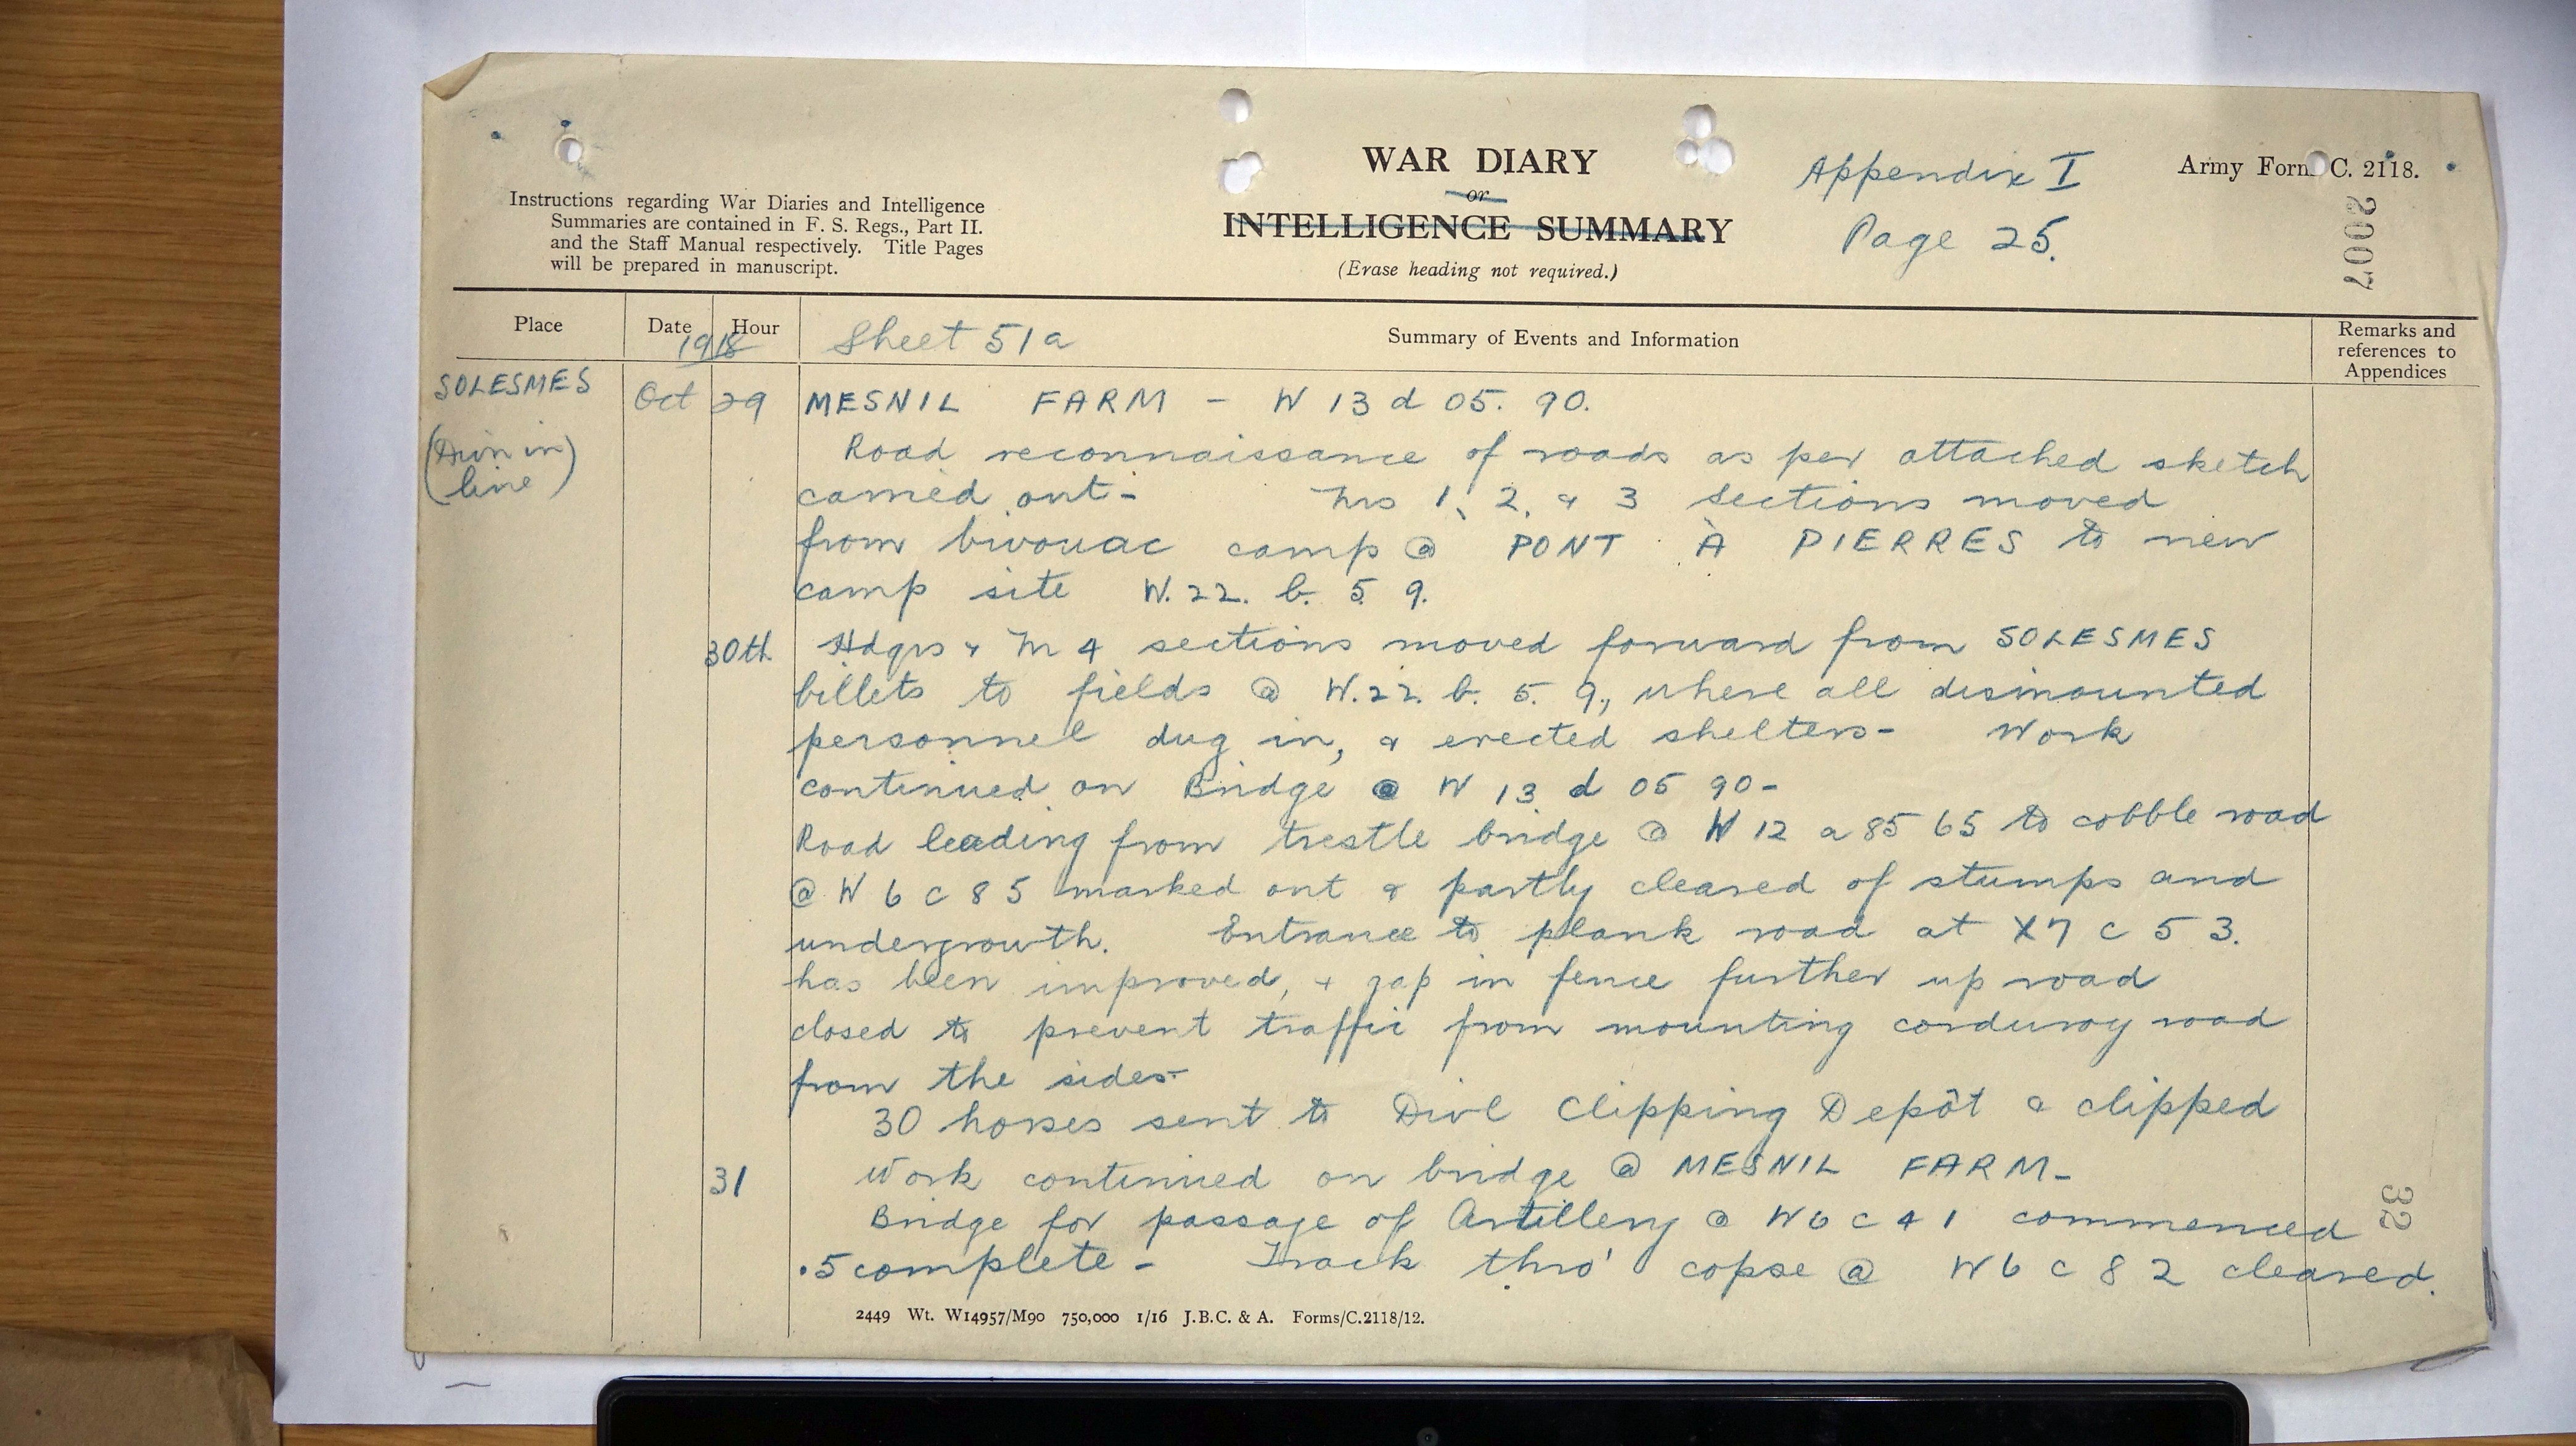 WAR DIARY
or
INTELLIGENCE SUMMARY
(Erase heading not required.)
Appendix I
Page 25.
Army Form C. 2118.
2007
Instructions regarding War Diaries and Intelligence
Summaries are contained in F. S. Regs., Part II.
and the Staff Manual respectively. Title Pages
will be prepared in manuscript.
Place Date Hour Summary of Events and Information Remarks and
references to
Appendices
1918 Sheet 51a
SOLESMES
(Divn in
line)
Oct 29 MESNIL FARM - W 13 d 05. 90.
Road reconnaissance of roads as per attached sketch
carried out - Nos 1, 2, & 3 Sections moved
from bivouac camp @ PONT À PIERRES to new
camp site W. 22. b. 5. 9.
30th Hdqrs & No 4 sections moved forward from SOLESMES
billets to fields @ W. 22. b. 5. 9., where all dismounted
personnel dug in, & erected shelters - Work
continued on Bridge @ W 13 d 05 90 -
Road leading from trestle bridge @ W 12 a 85 65 to cobble road
@ W 6 c 8 5 marked out & partly cleared of stumps and
undergrowth. Entrance to plank road at X7 c 5 3.
has been improved, + gap in fence further up road
closed to prevent traffic from mounting corduroy road
from the sides -
30 horses sent to Divl Clipping Depôt & clipped
31 Work continued on bridge @ MESNIL FARM -
Bridge for passage of Artillery @ W 6 c 4 1 commenced
.5 complete - Track thro' copse @ W 6 c 8 2 cleared.
32
2449 Wt. W14957/M90 750,000 1/16 J.B.C. & A. Forms/C.2118/12.